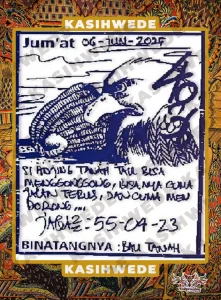 KASIHWEDE
Jum'at 06-JUN-2025
SI ADJING TANAH TAU BISA
MENGGONGGONG, BISANYA CUMA
JALAN TERUS, DAN CUMA MEN
DORONG...
55-04-23
BINATANGNYA : BAU TANAH
KASIHWEDE